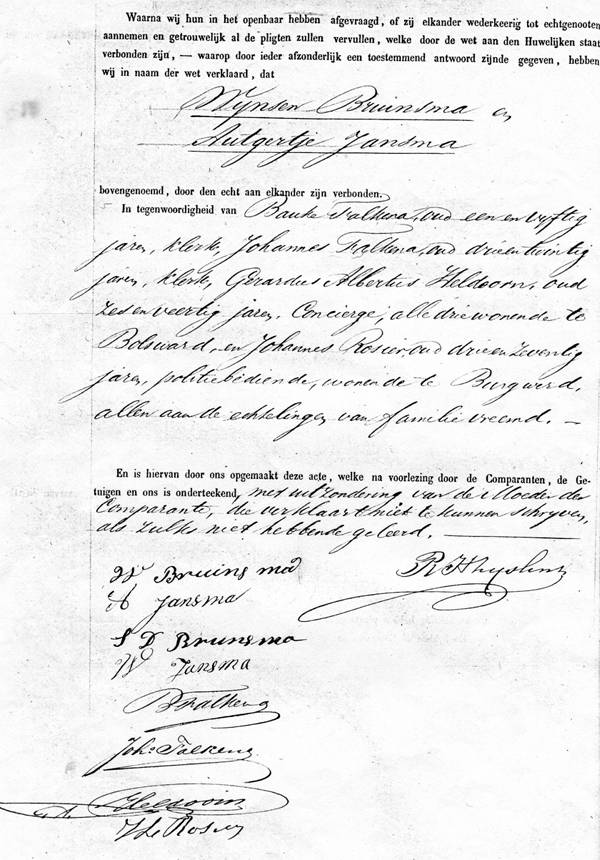 Waarna wij hun in het openbaar hebben afgevraagd, of zij elkander wederkeerig tot echtgenooten
aannemen en getrouwelijk al de pligten zullen vervullen, welke door de wet aan den Huwelijken staat
verbonden zijn, — waarop door ieder afzonderlijk een toestemmend antwoord zijnde gegeven, hebben
wij in naam der wet verklaard, dat
Wynsen Bruinsma en
Autgertje Jansma
bovengenoemd, door den echt aan elkander zijn verbonden.
In tegenwoordigheid van Bauke Falkena, oud een en vyftig
jaren, klerk, Johannes Falkena, oud drieentwintig
jaren, klerk, Gerardus Albertus Heldoorn, oud
zes en veertig jaren, Concierge, alle drie wonende te
Bolsward, en Johannes Rosier, oud drie en zeventig
jaren, politiebediende, wonende te Burgwerd,
allen aan de echtelingen van familie vreemd. —
En is hiervan door ons opgemaakt deze acte, welke na voorlezing door de Comparanten, de Ge-
tuigen en ons is onderteekend, met uitzondering van de Moeder der
Comparante, die verklaart niet te kunnen schryven,
als zulks niet hebbende geleerd. —
W Bruinsma
A Jansma
S D Bruinsma
W Jansma
B Falkena
Joh. Falkena
Heldoorn